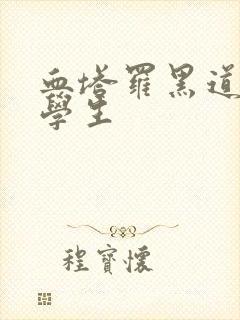 血塔罗黑道
學生
程寶懷